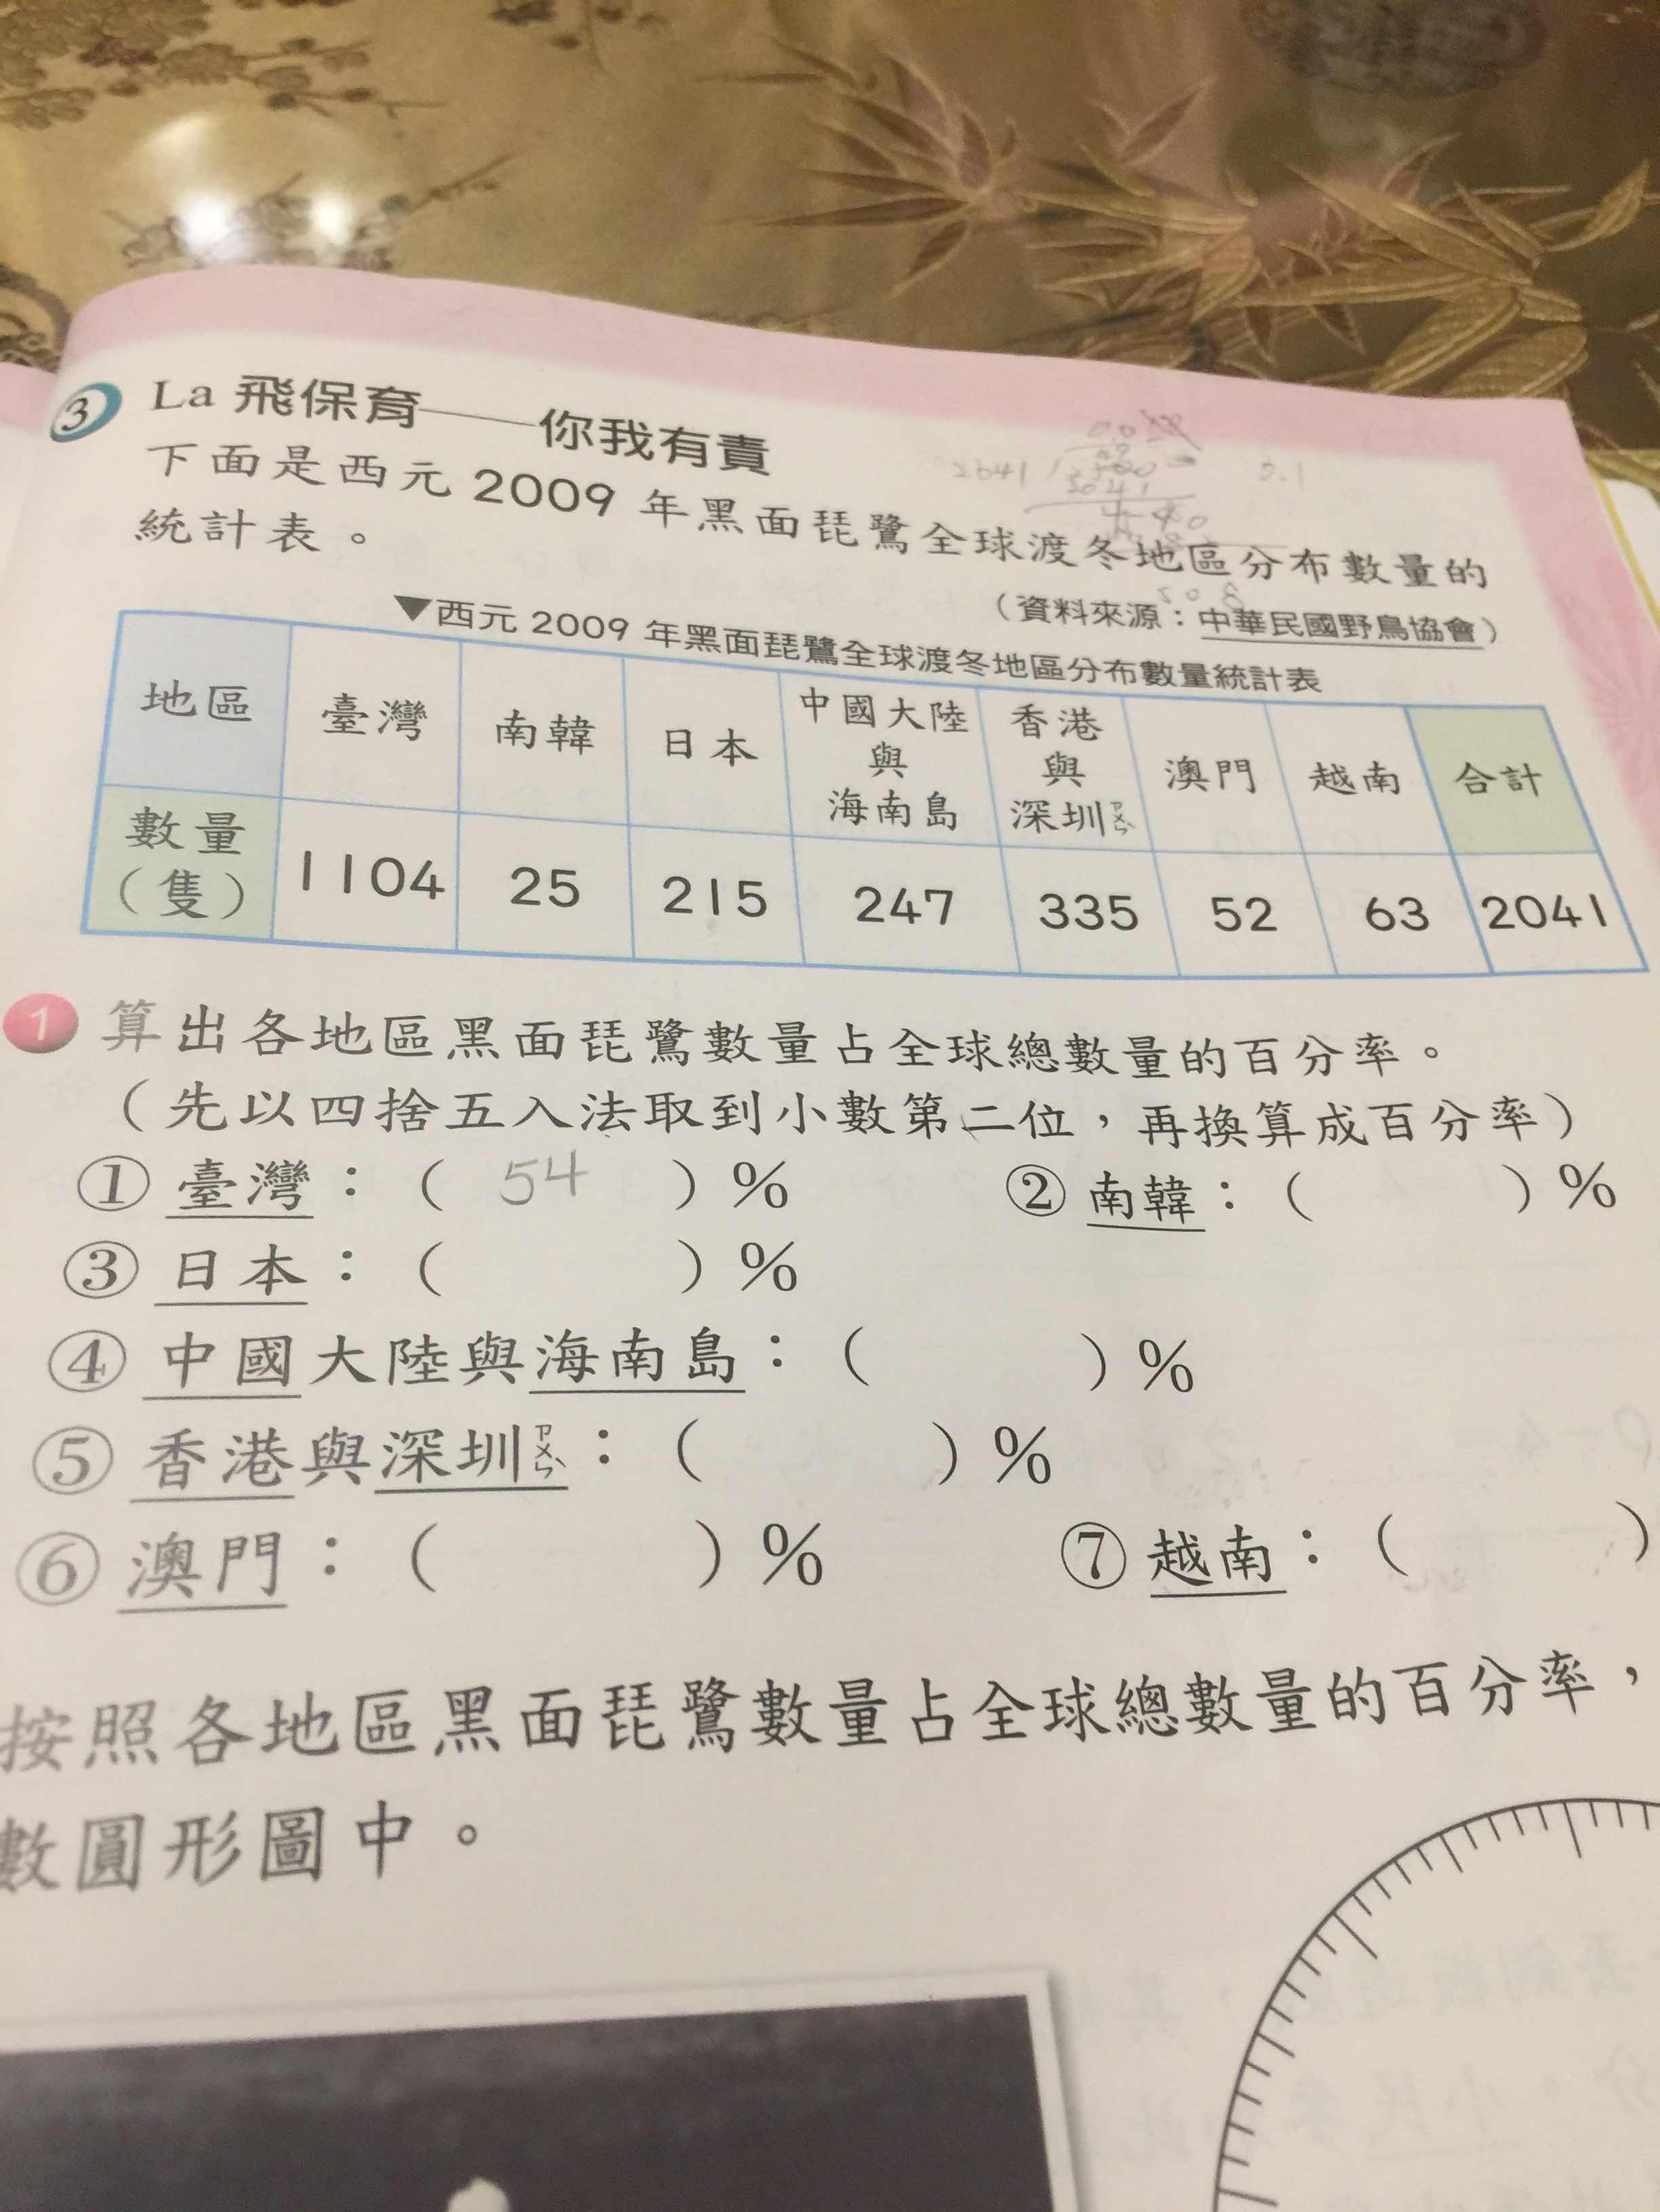 3 La 飛保育——你我有責
下面是西元 2009 年黑面琵鷺全球渡冬地區分布數量的
統計表。
（資料來源：中華民國野鳥協會）
▼西元 2009 年黑面琵鷺全球渡冬地區分布數量統計表
地區 臺灣 南韓 日本 中國大陸與海南島 香港與深圳ㄗㄨㄣˋ 澳門 越南 合計
數量（隻） 1104 25 215 247 335 52 63 2041
1 算出各地區黑面琵鷺數量占全球總數量的百分率。
（先以四捨五入法取到小數第二位，再換算成百分率）
① 臺灣：（ 54 ）% ② 南韓：（ ）%
③ 日本：（ ）%
④ 中國大陸與海南島：（ ）%
⑤ 香港與深圳ㄗㄨㄣˋ：（ ）%
⑥ 澳門：（ ）% ⑦ 越南：（ ）
按照各地區黑面琵鷺數量占全球總數量的百分率，
數圓形圖中。